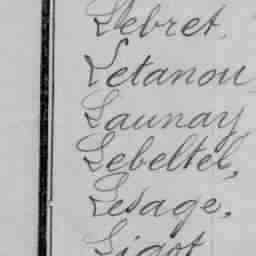 Lebret.
Letanou
Launay,
Lebeltel,
Lesage,
Ligot